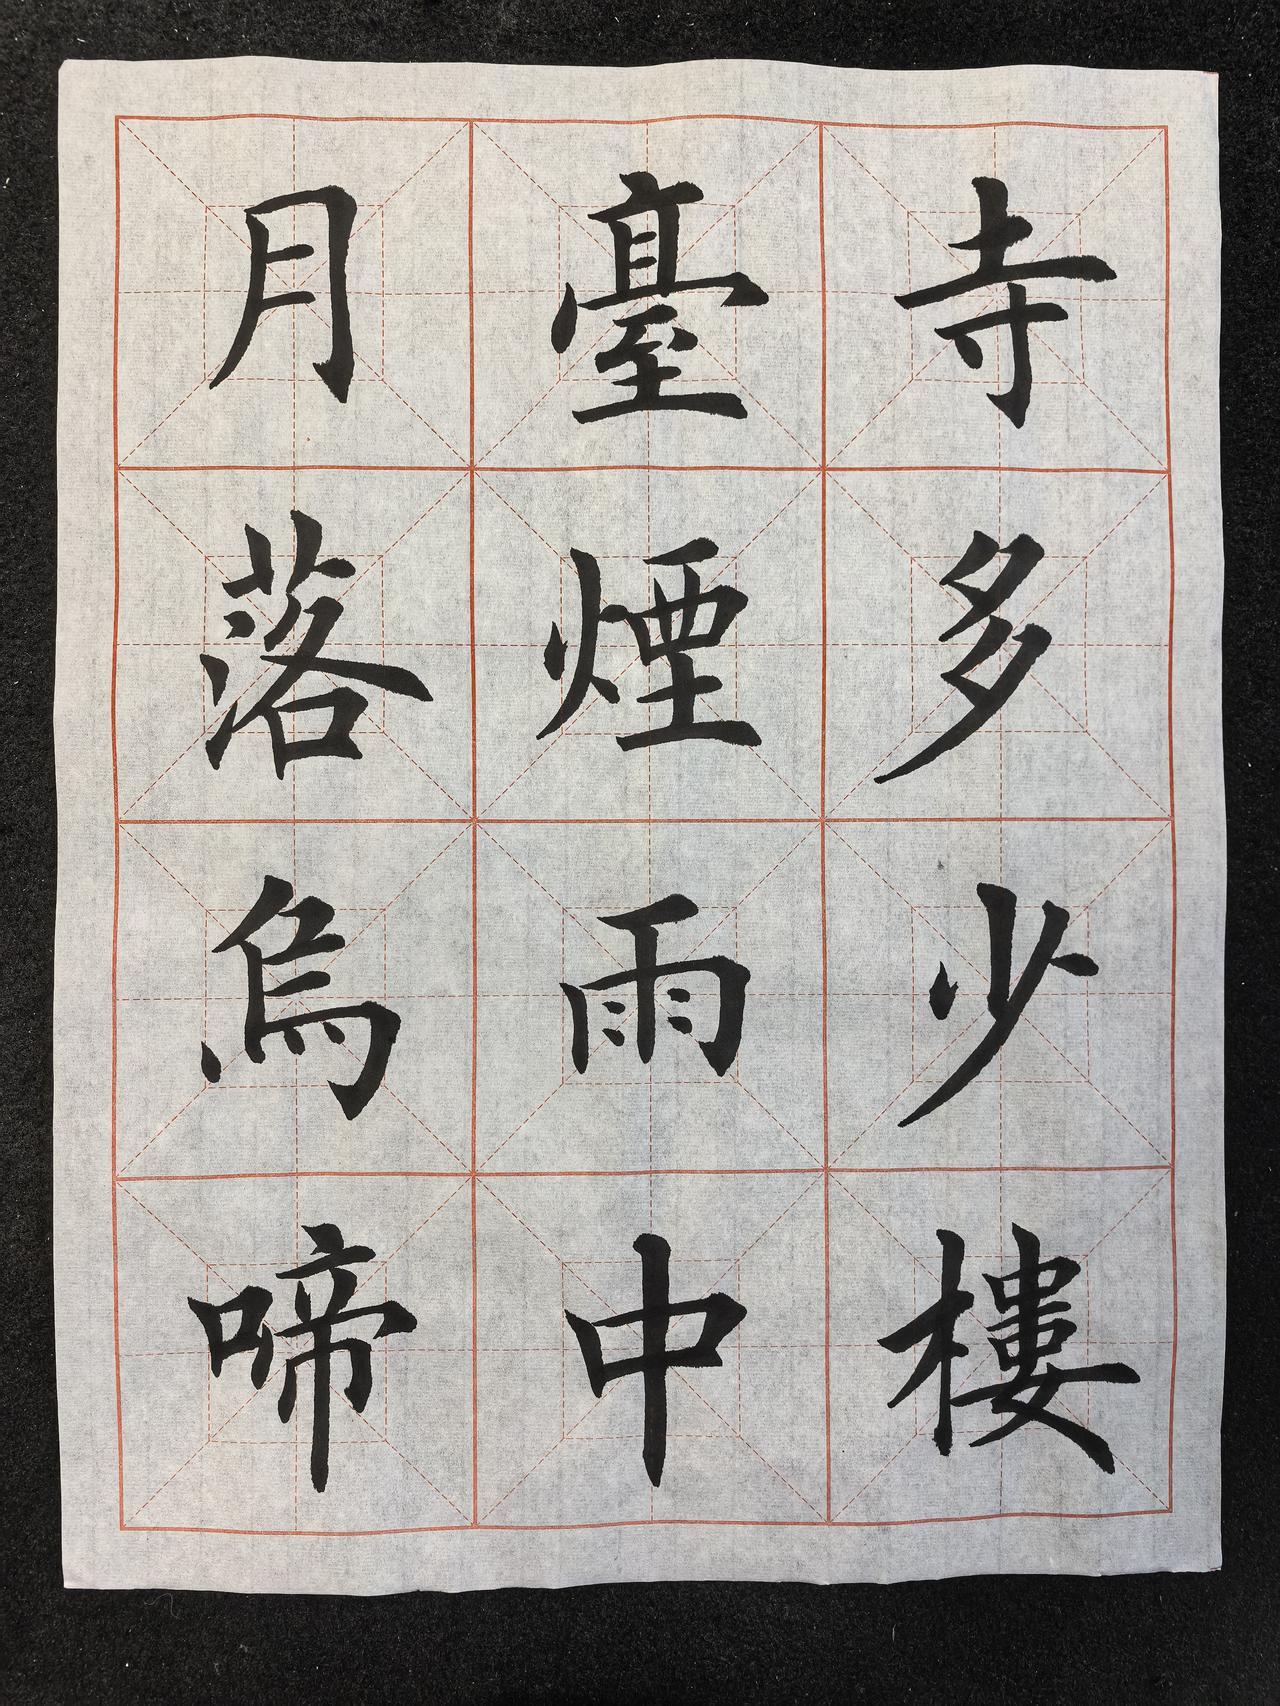 寺多少樓
臺煙雨中
月落烏啼